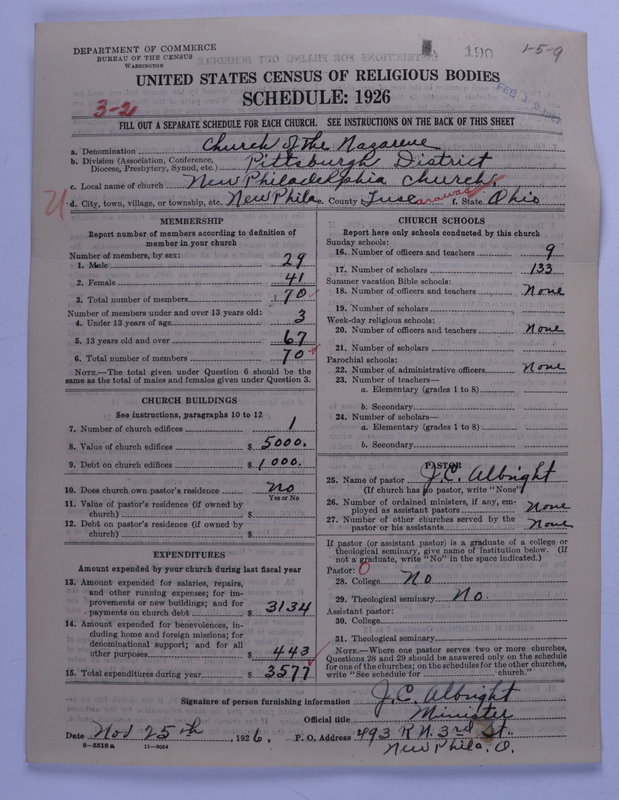 DEPARTMENT OF COMMERCE
BUREAU OF THE CENSUS
WASHINGTON
190
1-5-9
UNITED STATES CENSUS OF RELIGIOUS BODIES
SCHEDULE: 1926
3-2
FILL OUT A SEPARATE SCHEDULE FOR EACH CHURCH. SEE INSTRUCTIONS ON THE BACK OF THIS SHEET
a. Denomination Church of the Nazarene
b. Division (Association, Conference, Diocese, Presbytery, Synod, etc.) Pittsburgh District
c. Local name of church New Philadelphia Church.
d. City, town, village, or township, etc. New Phila e. County Tuscarawas f. State Ohio
U
MEMBERSHIP
Report number of members according to definition of
member in your church
Number of members, by sex:
1. Male 29
2. Female 41
3. Total number of members 70
Number of members under and over 13 years old:
4. Under 13 years of age 3
5. 13 years old and over 67
6. Total number of members 70
NOTE.—The total given under Question 6 should be
same as the total of males and females given under Question 3.
CHURCH BUILDINGS
See instructions, paragraphs 10 to 12
7. Number of church edifices 1
8. Value of church edifices $ 5000.
9. Debt on church edifices $ 1000.
10. Does church own pastor's residence No
Yes or No
11. Value of pastor's residence (if owned by
church) $
12. Debt on pastor's residence (if owned by
church) $
EXPENDITURES
Amount expended by your church during last fiscal year
13. Amount expended for salaries, repairs,
and other running expenses; for im-
provements or new buildings; and for
payments on church debt $ 3134
14. Amount expended for benevolences, in-
cluding home and foreign missions; for
denominational support; and for all
other purposes $ 443
15. Total expenditures during year $ 3577
CHURCH SCHOOLS
Report here only schools conducted by this church
Sunday schools:
16. Number of officers and teachers 9
17. Number of scholars 133
Summer vacation Bible schools:
18. Number of officers and teachers None
19. Number of scholars
Week-day religious schools:
20. Number of officers and teachers None
21. Number of scholars
Parochial schools:
22. Number of administrative officers None
23. Number of teachers—
a. Elementary (grades 1 to 8)
b. Secondary
24. Number of scholars—
a. Elementary (grades 1 to 8)
b. Secondary
PASTOR
25. Name of pastor J.C. Albright
(If church has no pastor, write "None")
26. Number of ordained ministers, if any, em-
ployed as assistant pastors None
27. Number of other churches served by the
pastor or his assistants None
If pastor (or assistant pastor) is a graduate of a college or
theological seminary, give name of institution below. (If
not a graduate, write "No" in the space indicated.)
Pastor: 0
28. College No
29. Theological seminary No.
Assistant pastor:
30. College
31. Theological seminary
NOTE.—Where one pastor serves two or more churches,
Questions 28 and 29 should be answered only on the schedule
for one of the churches; on the schedules for the other churches,
write "See schedule for church."
Signature of person furnishing information J.C. Albright
Official title Minister
Date Nov 25th, 1926. P. O. Address 493 R N. 3rd St.
New Phila. O.
8-5518a 11-9054